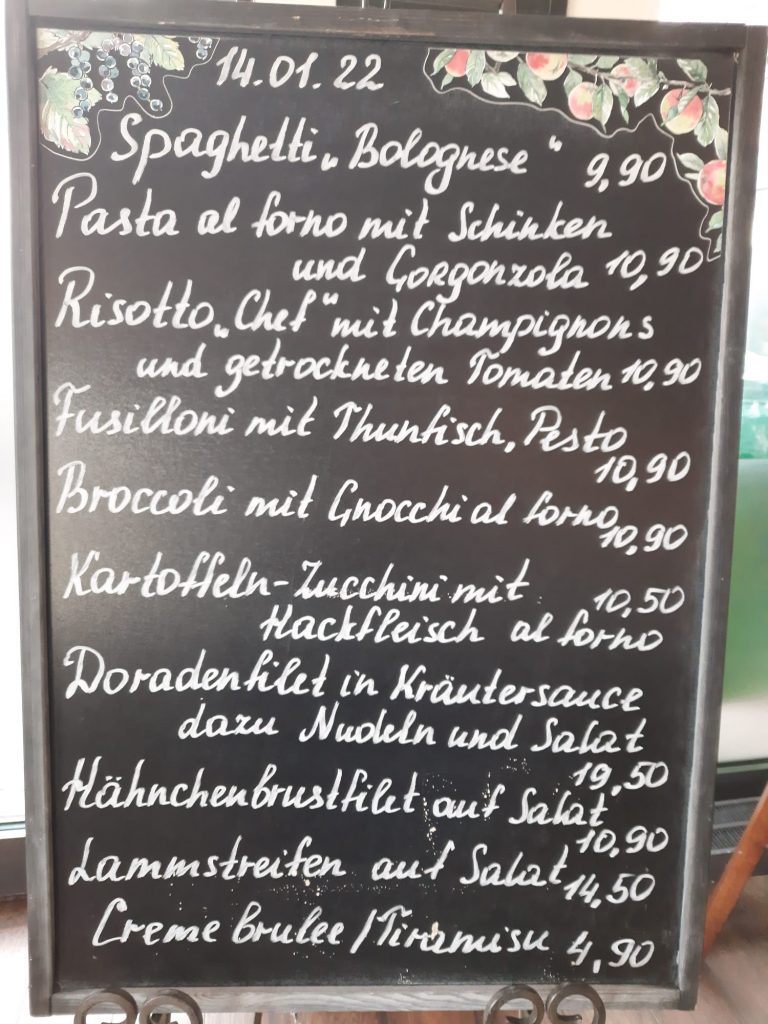 14.01.22
Spaghetti „Bolognese“ 9,90
Pasta al forno mit Schinken
und Gorgonzola 10,90
Risotto „Chef“ mit Champignons
und getrockneten Tomaten 10,90
Fusilloni mit Thunfisch, Pesto
10,90
Broccoli mit Gnocchi al forno
10,90
Kartoffeln-Zucchini mit 10,50
Hackfleisch al forno
Doradenfilet in Kräutersauce
dazu Nudeln und Salat
19,50
Hähnchenbrustfilet auf Salat
10,90
Lammstreifen auf Salat 14,50
Creme brulee/Tiramisu 4,90